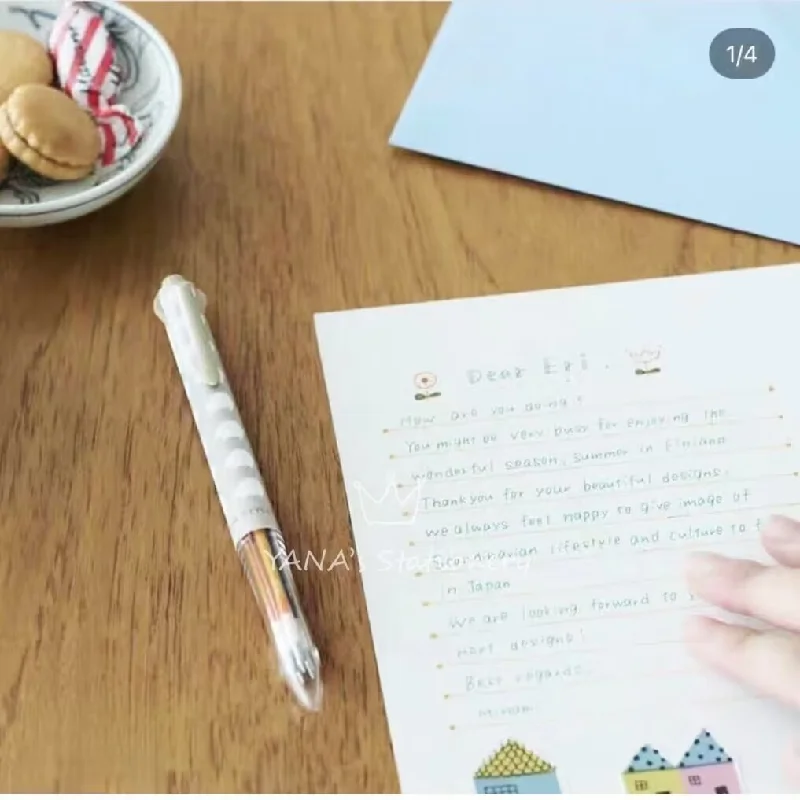 1/4
Dear Eri.
How are you doing?
You might be very busy for enjoying the
wonderful season, summer in Finland
Thankyou for your beautiful designs.
we always feel happy to give image of
Scandinavian lifestyle and culture to
YANA's Stationery
in Japan
We are looking forward to
next designs!
Best regards.